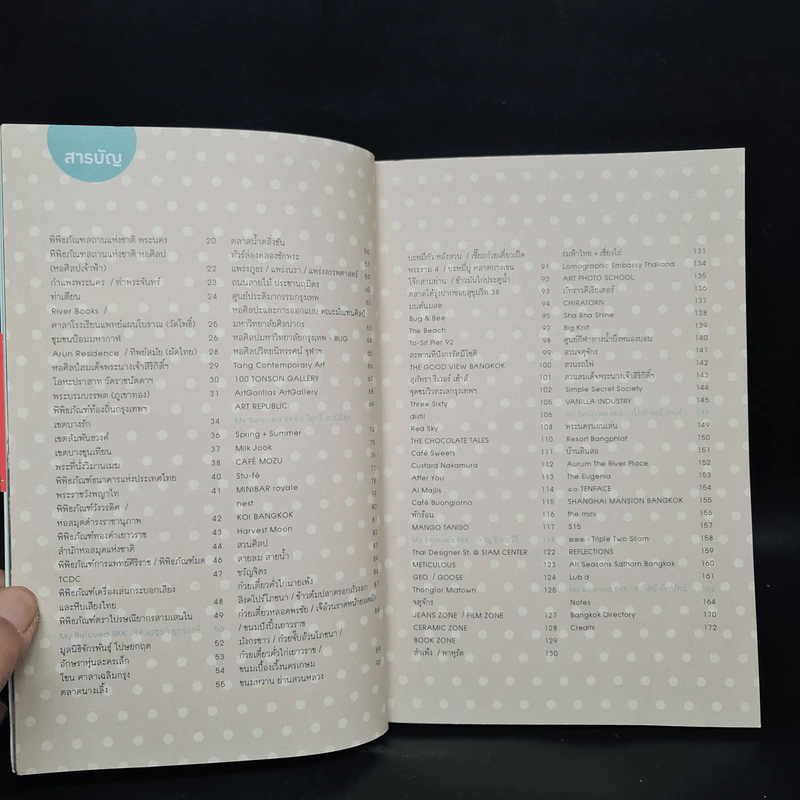 สารบัญ
พิพิธภัณฑสถานแห่งชาติ พระนคร 20
พิพิธภัณฑสถานแห่งชาติ หอศิลป
(หอศิลปเจ้าฟ้า) 22
กำแพงพระนคร / ท่าพระจันทร์ 23
ท่าเตียน 24
River Books /
ศาลาโรงเรียนแพทย์แผนโบราณ (วัดโพธิ์) 25
ชุมชนป้อมมหากาฬ 26
Arun Residence / ทิพย์สมัย (ผัดไทย) 28
หอศิลป์สมเด็จพระนางเจ้าสิริกิติ์ฯ 29
โลหะปราสาท วัดราชนัดดาฯ 30
พระบรมบรรพต (ภูเขาทอง) 31
พิพิธภัณฑ์ท้องถิ่นกรุงเทพฯ
เขตบางรัก 34
เขตสัมพันธวงศ์ 36
เขตบางขุนเทียน 37
พระที่นั่งวิมานเมฆ 38
พิพิธภัณฑ์ธนาคารแห่งประเทศไทย 40
พระราชวังพญาไท 41
พิพิธภัณฑ์วังวรดิศ /
หอสมุดดำรงราชานุภาพ 42
พิพิธภัณฑ์ทองคำเยาวราช 43
สำนักหอสมุดแห่งชาติ 44
พิพิธภัณฑ์การแพทย์ศิริราช / พิพิธภัณฑ์มด 46
TCDC 47
พิพิธภัณฑ์เครื่องเล่นกระบอกเสียง
และหีบเสียงไทย 48
พิพิธภัณฑ์ตราไปรษณียากรสามเสนใน 49
My Beloved BKK 50
มูลนิธิจักรพันธุ์ โปษยกฤต 52
อักษราหุ่นละครเล็ก 53
โขน ศาลาเฉลิมกรุง 54
ตลาดนางเลิ้ง 55
ตลาดน้ำตลิ่งชัน 56
ทัวร์ล่องคลองชักพระ 57
แพร่งภูธร / แพร่งนรา / แพร่งสรรพศาสตร์
ถนนสายไม้ ประชานฤมิตร
ศูนย์ประติมากรรมกรุงเทพ
หอศิลปะและการออกแบบ คณะมัณฑนศิลป์
มหาวิทยาลัยศิลปากร
หอศิลปมหาวิทยาลัยกรุงเทพ - BUG
หอศิลปวิทยนิทรรศน์ จุฬาฯ
Tang Contemporary Art
100 TONSON GALLERY
ArtGorillas ArtGallery
ART REPUBLIC
My Beloved BKK
Spring + Summer
Milk Jook
CAFÉ MOZU
Stu-fé
MINIBAR royale
nest
KOI BANGKOK
Harvest Moon
สวนศิลป์
สายลม สายน้ำ
ขวัญจิตร
ก๋วยเตี๋ยวคั่วไก่นายเพ้ง
สิงคโปร์โภชนา / ข้าวต้มปลาตรอกถั่วงอก
ก๋วยเตี๋ยวหลอดพรชัย /
/ ขนมปังปิ้งเยาวราช
มังกรขาว / ก๋วยจั๊บอ้วนโภชนา /
ก๋วยเตี๋ยวคั่วไก่เยาวราช /
ขนมเบื้องเวิ้งนครเกษม
ขนมหวาน ย่านสวนหลวง 90
บะหมี่กัว หลังสวน / เซี๊ยะก๋วยเตี๋ยวเป็ด
พระราม 4 / บะหมี่ปู ตลาดบางเขน 91
โจ๊กสามย่าน / ข้าวมันไก่ประตูน้ำ 92
ตลาดโต้รุ่งปากซอยสุขุมวิท 38 93
มนต์นมสด 94
Bug & Bee 95
The Beach 97
To-Sit Pier 92 98
สะพานที่บังกรัคมีโชติ 99
THE GOOD VIEW BANGKOK 100
สุภัทรา ริเวอร์ เฮ้าส์ 101
จุดชมวิวทะเลกรุงเทพฯ 102
Three Sixty 105
distil 106
Red Sky 108
THE CHOCOLATE TALES 110
Café Sweets 111
Custard Nakamura 112
After You 113
Al Majlis 114
Café Buongiorno 115
พักร้อน 116
MANGO TANGO 117
My Beloved BKK 118
Thai Designer St. @ SIAM CENTER 122
METICULOUS 123
GEO / GOOSE 124
Thonglor Midtown 125
จตุจักร
JEANS ZONE / FILM ZONE 127
CERAMIC ZONE 128
BOOK ZONE 129
สำเพ็ง / พาหุรัด 130
ร่มฟ้าไทย + เซี่ยงไถ่ 131
Lomographic Embassy Thailand 134
ART PHOTO SCHOOL 135
ภัทราวดีเธียเตอร์ 136
CHIRATORN 137
Sha Bha Shine 138
Big Knit 139
ศูนย์กีฬาทางน้ำบึงหนองบอน 140
สวนจตุจักร 141
สวนรถไฟ 142
สวนสมเด็จพระนางเจ้าสิริกิติ์ฯ 143
Simple Secret Society 144
VANILLA INDUSTRY 145
My Beloved BKK 146
พระนครนอนเล่น 149
Resort Bangphlat 150
บ้านดินสอ 151
Aurum The River Place 152
The Eugenia 153
๑๐ TENFACE 154
SHANGHAI MANSION BANGKOK 155
the mini 156
S15 157
๒๒๒ : Triple Two Silom 158
REFLECTIONS 159
All Seasons Sathorn Bangkok 160
Lub.d 161
My Beloved BKK 162
Notes 164
Bangkok Directory 170
Credits 172